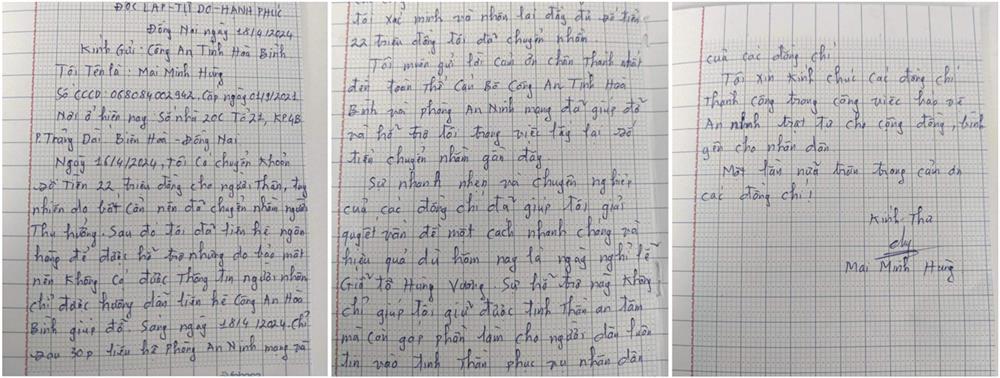 ĐỘC LẬP - TỰ DO - HẠNH PHÚC
Đồng Nai ngày 18/4/2024
Kính Gửi: Công An Tỉnh Hoà Bình
Tôi Tên là: Mai Minh Hưng
Số CCCD: 068084002942. Cấp ngày 01/9/2021
Nơi ở hiện nay Số nhà 20C Tổ 21, KP4B
P. Trảng Dài Biên Hoà - Đồng Nai
Ngày 16/4/2024, tôi có chuyển khoản
Số Tiền 22 triệu đồng cho người Thân, tuy
nhiên do bất cẩn nên đã chuyển nhầm người
Thụ hưởng. Sau đó tôi đã liên hệ ngân
hàng để được hỗ trợ nhưng do bảo mật
nên không có được Thông tin người nhận
chỉ được hướng dẫn liên hệ Công An Hoà
Bình giúp đỡ. Sáng ngày 18/4/2024. Chỉ
Sau 30p liên hệ Phòng An Ninh mạng và
tôi xác minh và nhận lại đầy đủ số tiền
22 triệu đồng tôi đã chuyển nhầm.
Tôi muốn gửi lời cảm ơn chân Thành nhất
đến toàn Thể Cán Bộ Công An Tỉnh Hoà
Bình và phòng An Ninh mạng đã giúp đỡ
và hỗ trợ tôi trong việc lấy lại số
tiền chuyển nhầm gần đây.
Sự nhanh nhẹn và chuyên nghiệp
của các đồng chí đã giúp tôi giải
quyết vấn đề một cách nhanh chóng và
hiệu quả dù hôm nay là ngày nghỉ lễ
Giỗ tổ Hùng Vương. Sự hỗ trợ này không
chỉ giúp tôi giữ được tinh Thần an tâm
mà còn góp phần làm cho người dân luôn
tin vào tinh Thần phục vụ nhân dân
của các đồng chí
Tôi xin kính chúc các đồng chí
Thành công trong công việc bảo vệ
An ninh trật tự cho cộng đồng, bình
yên cho nhân dân.
Một lần nữa trân trọng cảm ơn
các đồng chí!
Kính Thư
Mai Minh Hưng